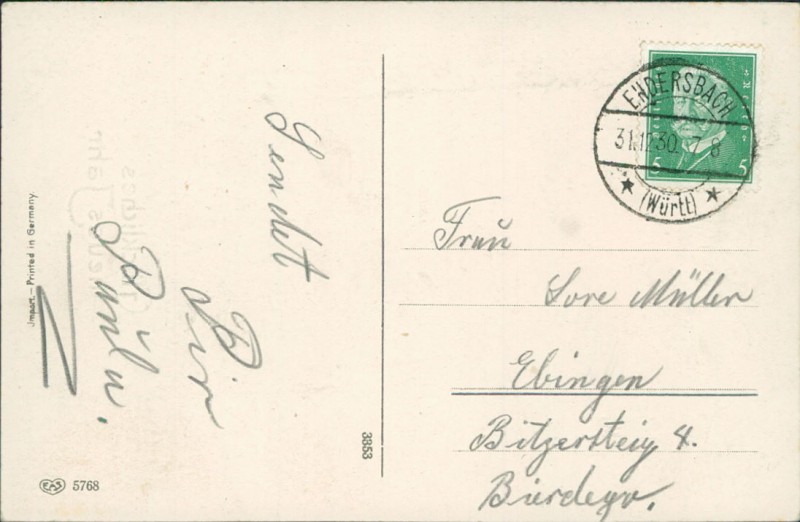 Sendet
Dir
Paula.
Import. - Printed in Germany.
EAS 5768
3853
ENDERSBACH
31.12.30. 7-8
(Württ)
5 5
Frau
Lore Müller
Ebingen
Bitzersteig 4.
Neues Jahr